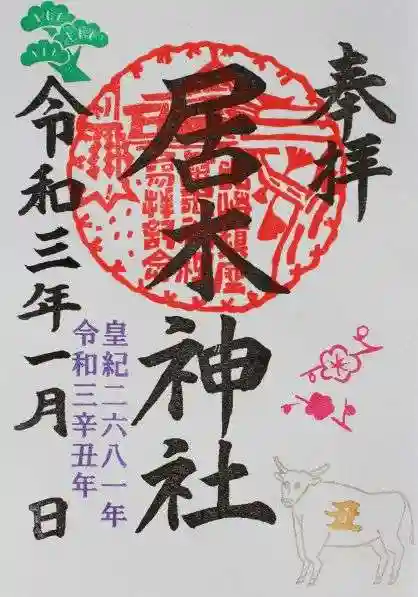 奉拝
居木神社
皇紀二六八一年
令和三辛丑年
令和三年一月 日
丑